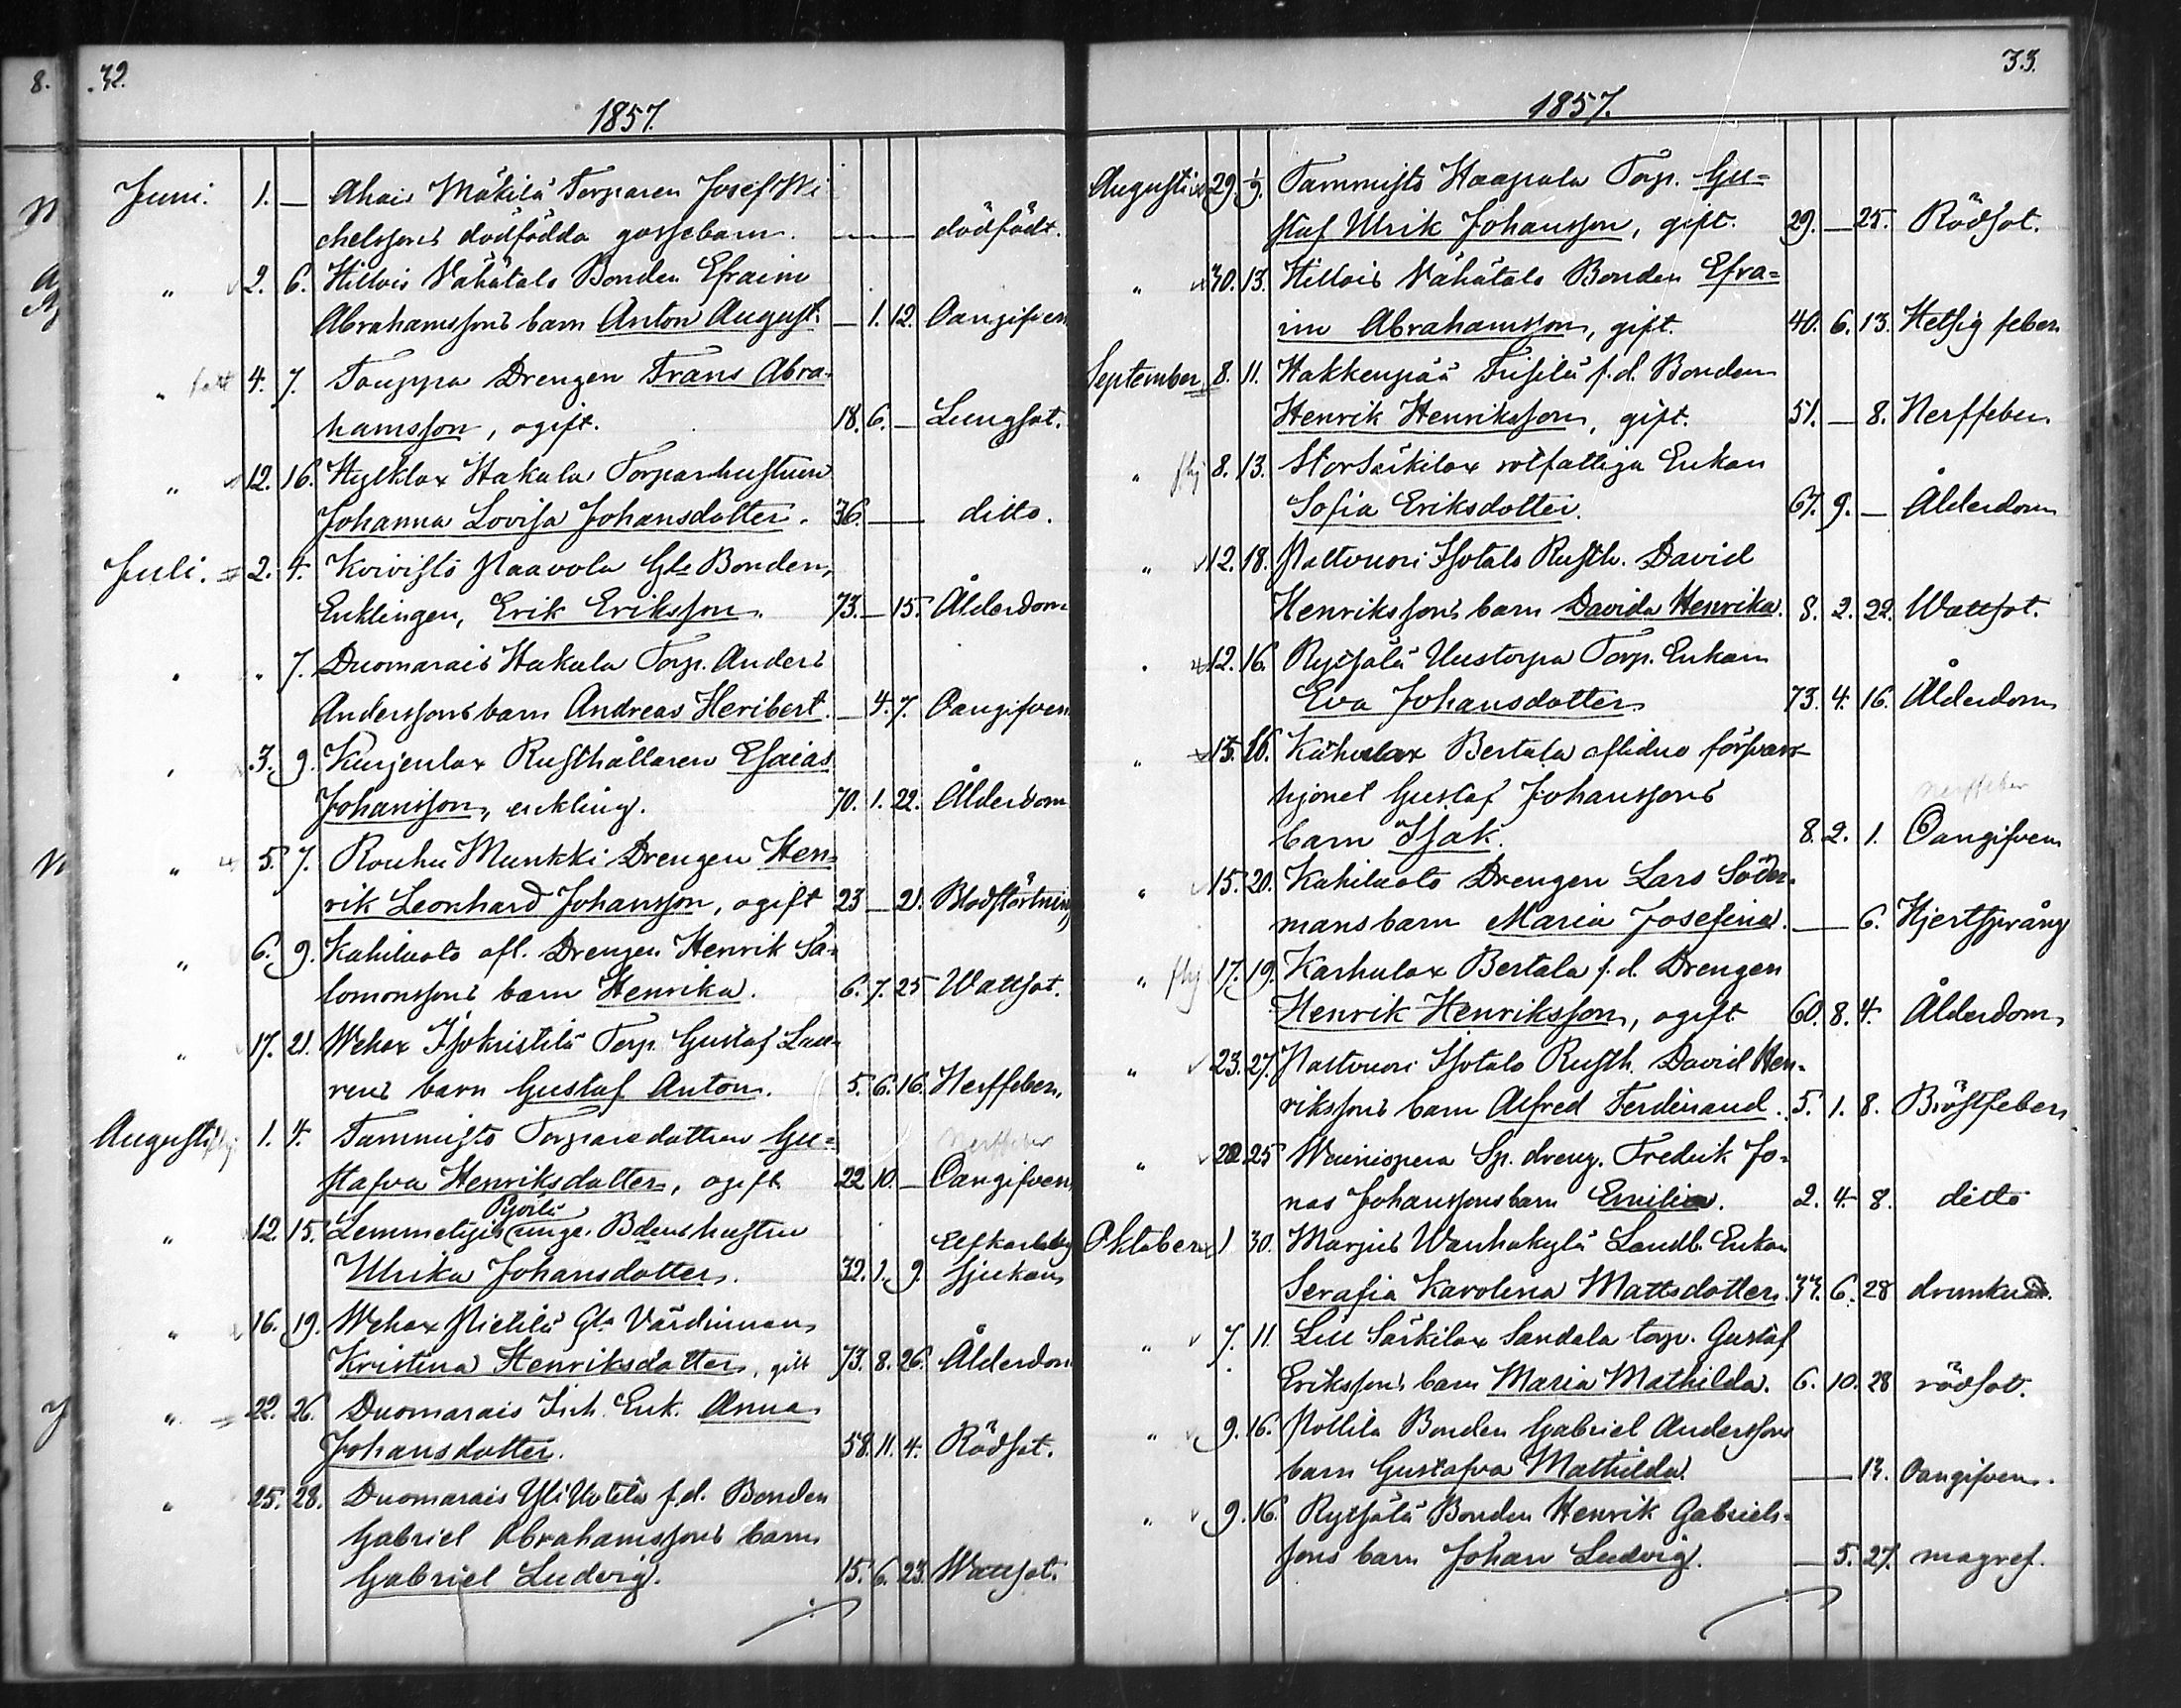 32.
1857.
Juni. 1. — Ahais Mäkilä Torparen Josef Mi
chelssons dödfödda gossebarn. — — — dödfödt.
" 2. 6. Hillois Vähätalo Bonden Efraim
Abrahamssons barn Anton August. — 1. 12. Oangifven
" 4. 7. Touppa Drengen Frans Abra-
hamsson, ogift. 18. 6. — Lungsot.
" 12. 16. Hylklax Hakula Torparhustrun
Johanna Lovisa Johansdotter. 36. — — ditto.
Juli. 2. 4. Koivisto Paavola Gle Bonden,
Enklingen, Erik Eriksson. 73. — 15. Ålderdom
" " 7. Duomarais Hakula Torp. Anders
Anderssons barn Andreas Heribert. — 4. 7. Oangifven
" 3. 9. Kurjenlax Rusthållaren Esaias
Johansson, enkling. 70. 1. 22. Ålderdom
" 5. 7. Rouhu Munkki Drengen Hen-
rik Leonhard Johansson, ogift 23 — 21. Blodstörtning
" 6. 9. Kahiluoto afl. Drengen Henrik Sa-
lomonssons barn Henrika. 6. 7. 25 Wattsot.
" 17. 21. Wehax Isokristilä Torp. Gustaf Lau-
rens barn Gustaf Anton. 5. 6. 16. Nerffeber.
Augusti 1. 4. Tammisto Torparedottren Gu-
nerffeber
stafva Henriksdotter, ogift 22 10. — Oangifven
Pyöli
" 12. 15. Lemmetyis unge Bdens hustru Elfkarleby
Ulrika Johansdotter. 32. 1. 9. sjukan
" 16. 19. Wehax Pietilä Gla Värdinnan
Kristina Henriksdotter, gift 73. 8. 26. Ålderdom
" 22. 26. Duomarais Inh. Enk. Anna
Johansdotter. 58. 11. 4. Rödsot.
" 25. 28. Duomarais Yli f.d. Bonden
Gabriel Abrahamssons barn
Gabriel Ludvig. 15. 6. 23. Wattsot.
33.
1857.
Augusti 29. 1/9. Tammisto Haapala Torp. Gu-
staf Ulrik Johansson, gift. 29. — 25. Rödsot.
" 30. 13. Hillois Vähätalo Bonden Efra-
im Abrahamsson, gift. 40. 6. 13. Hetsig feber
September 8. 11. Hakkenpää Frisilä f.d. Bonden
Henrik Henriksson, gift. 51. — 8. Nerffeber
" 8. 13. Stor Särkilax rotfattiga Enkan
Sofia Eriksdotter. 67. 9. — Ålderdom
" 12. 18. Pattvuori Isotalo Rusth. David
Henrikssons barn Davida Henrika. 8. 2. 22. Wattsot.
" 12. 16. Rytsälä Uustorpa Torp. Enkan
Eva Johansdotter 73. 4. 16. Ålderdom
" 15. 16. Karhulax Bertala aflidne försvars
hjonet Gustaf Johanssons
nerffeber
barn Isak. 8. 2. 1. Oangifven
" 15. 20. Kahiluoto Drengen Lars Söder-
mans barn Maria Josefina. — — 6. Hjertsprång
" 17. 19. Karhulax Bertala f.d. Drengen
Henrik Henriksson, ogift 60. 8. 4. Ålderdom
" 23. 27. Pattvuori Isotalo Rusth. David Hen-
rikssons barn Alfred Ferdinand. 5. 1. 8. Bröstfeber
" 22 25 Wainiopera Sp. dreng. Fredrik Jo-
nas Johanssons barn Emilia. 2. 4. 8. ditto
Oktober 1 30. Marjus Wanhakylä Landb. Enkan
Serafia Karolina Mattsdotter. 34. 6. 28 drunknad.
" 7. 11. Lill Särkilax Sandala torp. Gustaf
Erikssons barn Maria Mathilda. 6. 10. 28 rödsot.
" 9. 16. Pollila Bonden Gabriel Anderssons
barn Gustafva Mathilda. — — 13. Oangifven.
" 9. 16. Rytsälä Bonden Henrik Gabriels-
sons barn Johan Ludvig. — 5. 27. magref.